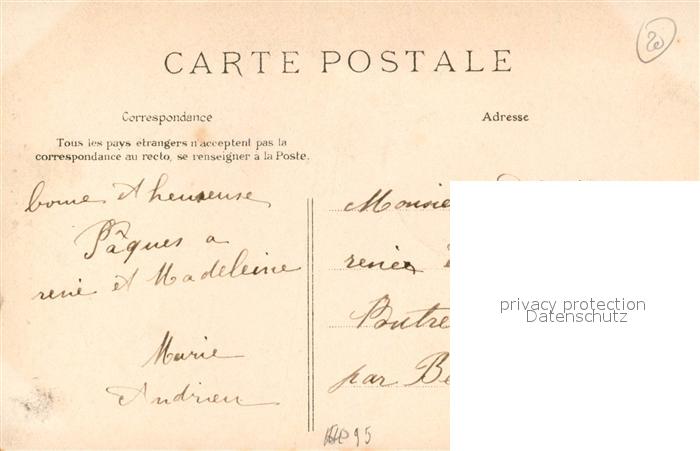 CARTE POSTALE
Correspondance
Adresse
Tous les pays étrangers n'acceptent pas la
correspondance au recto, se renseigner à la Poste.
bonne et heureuse
Pâques a
rené et Madeleine
Marie
Andrieu
Monsie
renée
Butre
par Be
privacy protection
Datenschutz
95